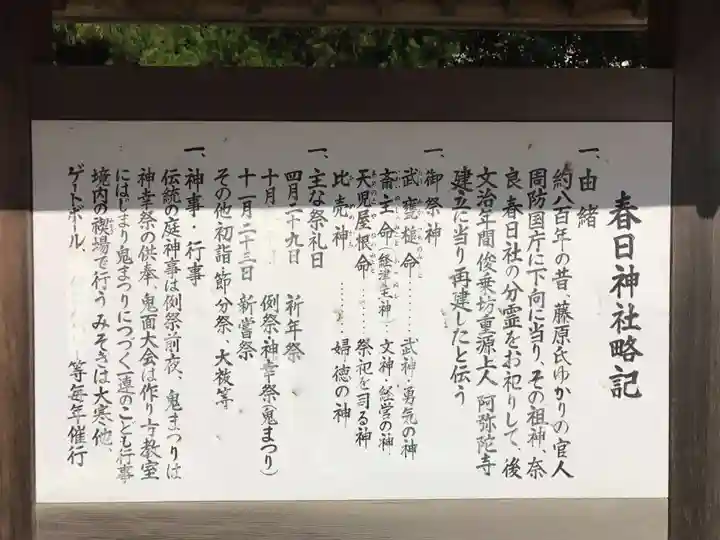 春日神社略記
一、由緒
約八百年の昔、藤原氏ゆかりの官人
周防国庁に下向に当り、その祖神、奈
良春日社の分霊をお祀りして、後
文治年間俊乗坊重源上人阿弥陀寺
建立に当り再建したと伝う
一、御祭神
武甕槌命……武神・勇気の神
斎主命(経津主神)…文神・経営の神
天児屋根命……祭祀を司る神
比売神……婦徳の神
一、主な祭礼日
四月二十九日 祈年祭
十月 例祭・神幸祭(鬼まつり)
十一月二十三日 新嘗祭
その他初詣、節分祭、大祓等
一、神事・行事
伝統の庭神事は例祭前夜、鬼まつりは
神幸祭の供奉、鬼面大会は作り方教室
にはじまり鬼まつりにつづく一連のこども行事
境内の禊場で行うみそぎは大寒他、
ゲートボール、 等毎年催行